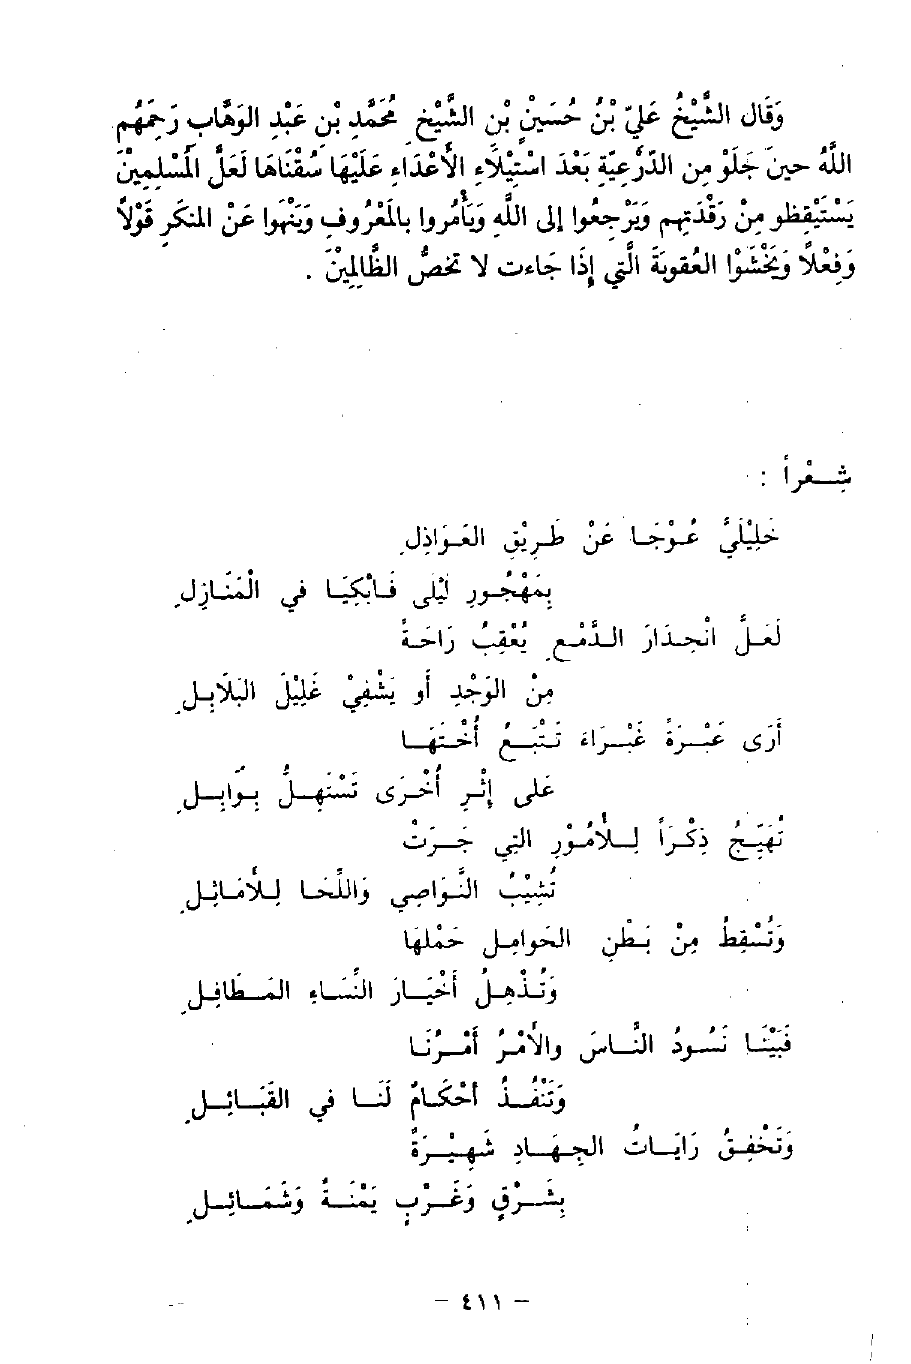 وَقَال الشَّيْخُ عَليّ بْنُ حُسَيْنِ بْنِ الشَّيْخِ مُحَمَّدِ بْنِ عَبْدِ الوَهَّابِ رَحِمَهُم
اللهُ حينَ جَلَوْ مِن الدّرْعِيَّةِ بَعْدَ اسْتِيْلَاءِ الأَعْدَاء عَلَيْهَا سُقْنَاهَا لَعَلَّ المُسْلِمِيْنَ
يَسْتَيْقِظُو مِنْ رَقْدَتِهِم وَيَرْجِعُوا إلى اللَّهِ وَيَأْمُروا بالمَعْرُوفِ وَيَنْهَوا عَنْ المنكَرِ قَوْلاً
وَفِعْلاً وَيَخْشَوْا العُقوبَةَ الَّتي إِذَا جَاءت لا تخصُّ الظَّالِمِيْنَ .
شِعْراً :
خَلِيْلَيَّ عُوْجَا عَنْ طَرِيْقِ العَوَاذِلِ
بِمَهْجُورِ لَيْلى فَابْكِيَا في الْمَنَازِلِ
لَعَلَّ انْحِدَارَ الدَّمْعِ يُعْقِبُ رَاحَةً
مِنْ الوَجْدِ أو يَشْفِيْ غَلِيْلَ البَلَابِلِ
أَرَى عَبْرَةً غَبْرَاءَ تَتْبَعُ أُخْتَهَا
عَلى إِثْرِ أُخْرَى تَسْتَهِلُّ بِوَابِلِ
تُهَيِّجُ ذِكْراً لِلأُمُوْرِ التي جَرَتْ
تُشِيْبُ النَّوَاصِي وَاللِّحَا لِلأَمَاثِلِ
وَتُسْقِطُ مِنْ بَطْنِ الحَوامِلِ حَمْلَهَا
وَتُذْهِلُ أَخْيَارَ النِّسَاءِ المَطَافِلِ
فَبَيْنَا نَسُودُ النَّاسَ والأَمْرُ أَمْرُنَا
وَتَنْفُذُ أَحْكَامٌ لَنَا في القَبَائِلِ
وَتَخْفِقُ رَايَاتُ الجِهَادِ شَهِيْرَةً
بِشَرْقٍ وَغَرْبٍ يَمْنَةً وَشَمَائِلِ
– ٤١١ –